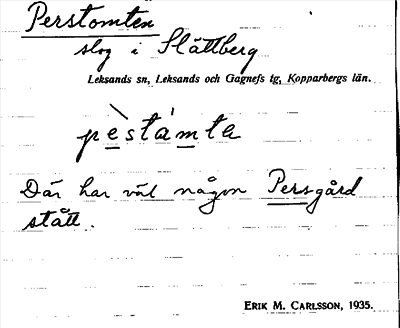 Perstomten
slog i Slättberg
Leksands sn, Leksands och Gagnefs tg, Kopparbergs län.
pèstámta
Där har väl någon Persgård
stått.
ERIK M. CARLSSON, 1935.